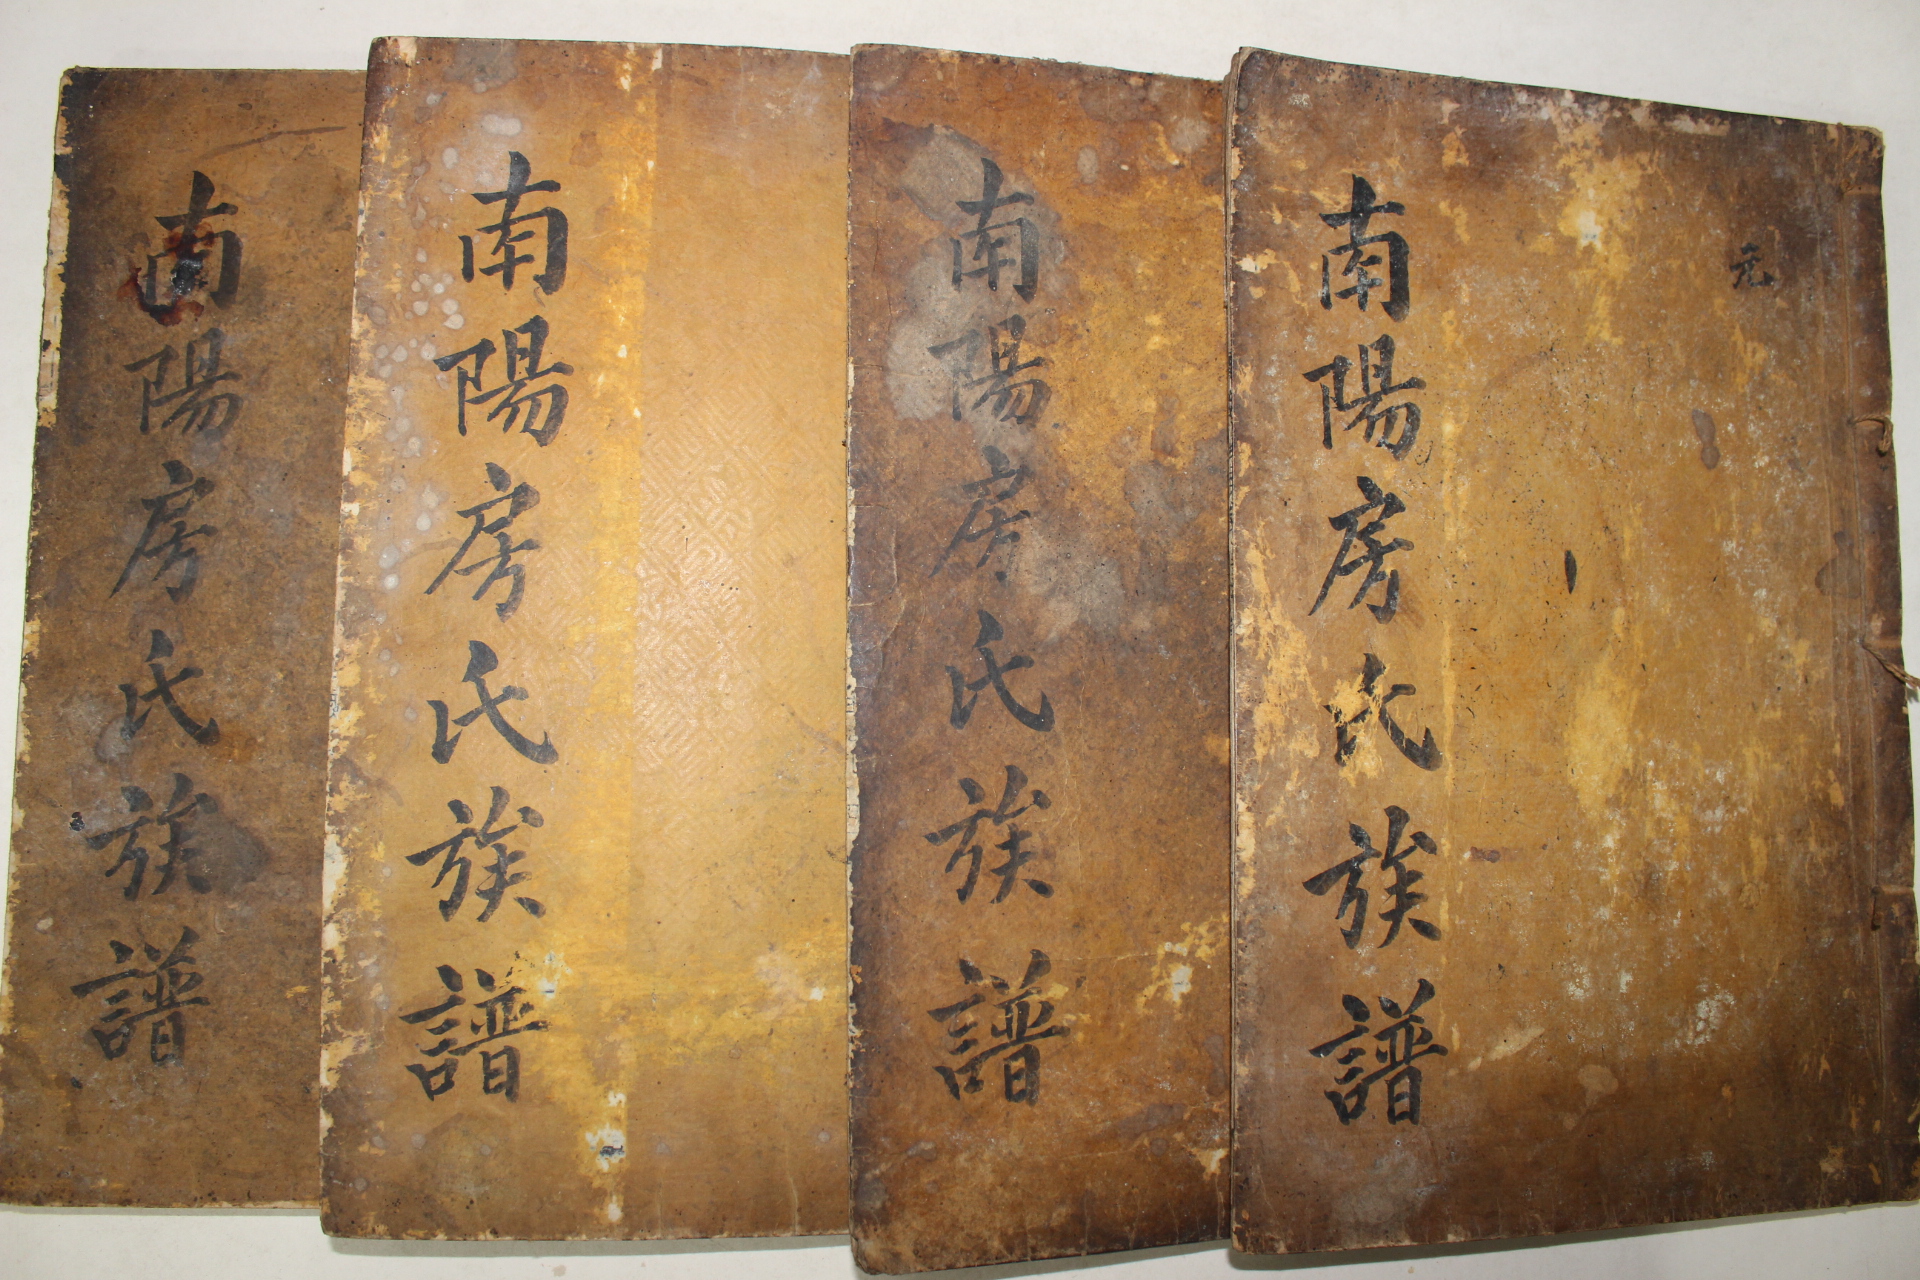 元
南陽房氏族譜
南陽房氏族譜
南陽房氏族譜
南陽房氏族譜